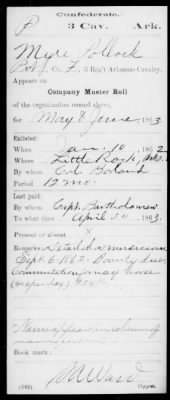 Confederate.
P 3 Cav. Ark.
Myre Pollock
Pvt, Co. F, 3 Reg't Arkansas Cavalry.
Appears on
Company Muster Roll
of the organization named above,
for May & June, 1863
Enlisted:
When Jan. 10, 1862
Where Little Rock, Ark.
By whom Col Borland
Period 12 mo.
Last paid:
By whom Capt. Bartholomew
To what time April 30, 1863.
Present or absent x
Remarks: Detailed as musician
Sept. 6-1862- Bounty due
Commutation away horse
Name appears in column of
Book mark:
(642) Copyist.